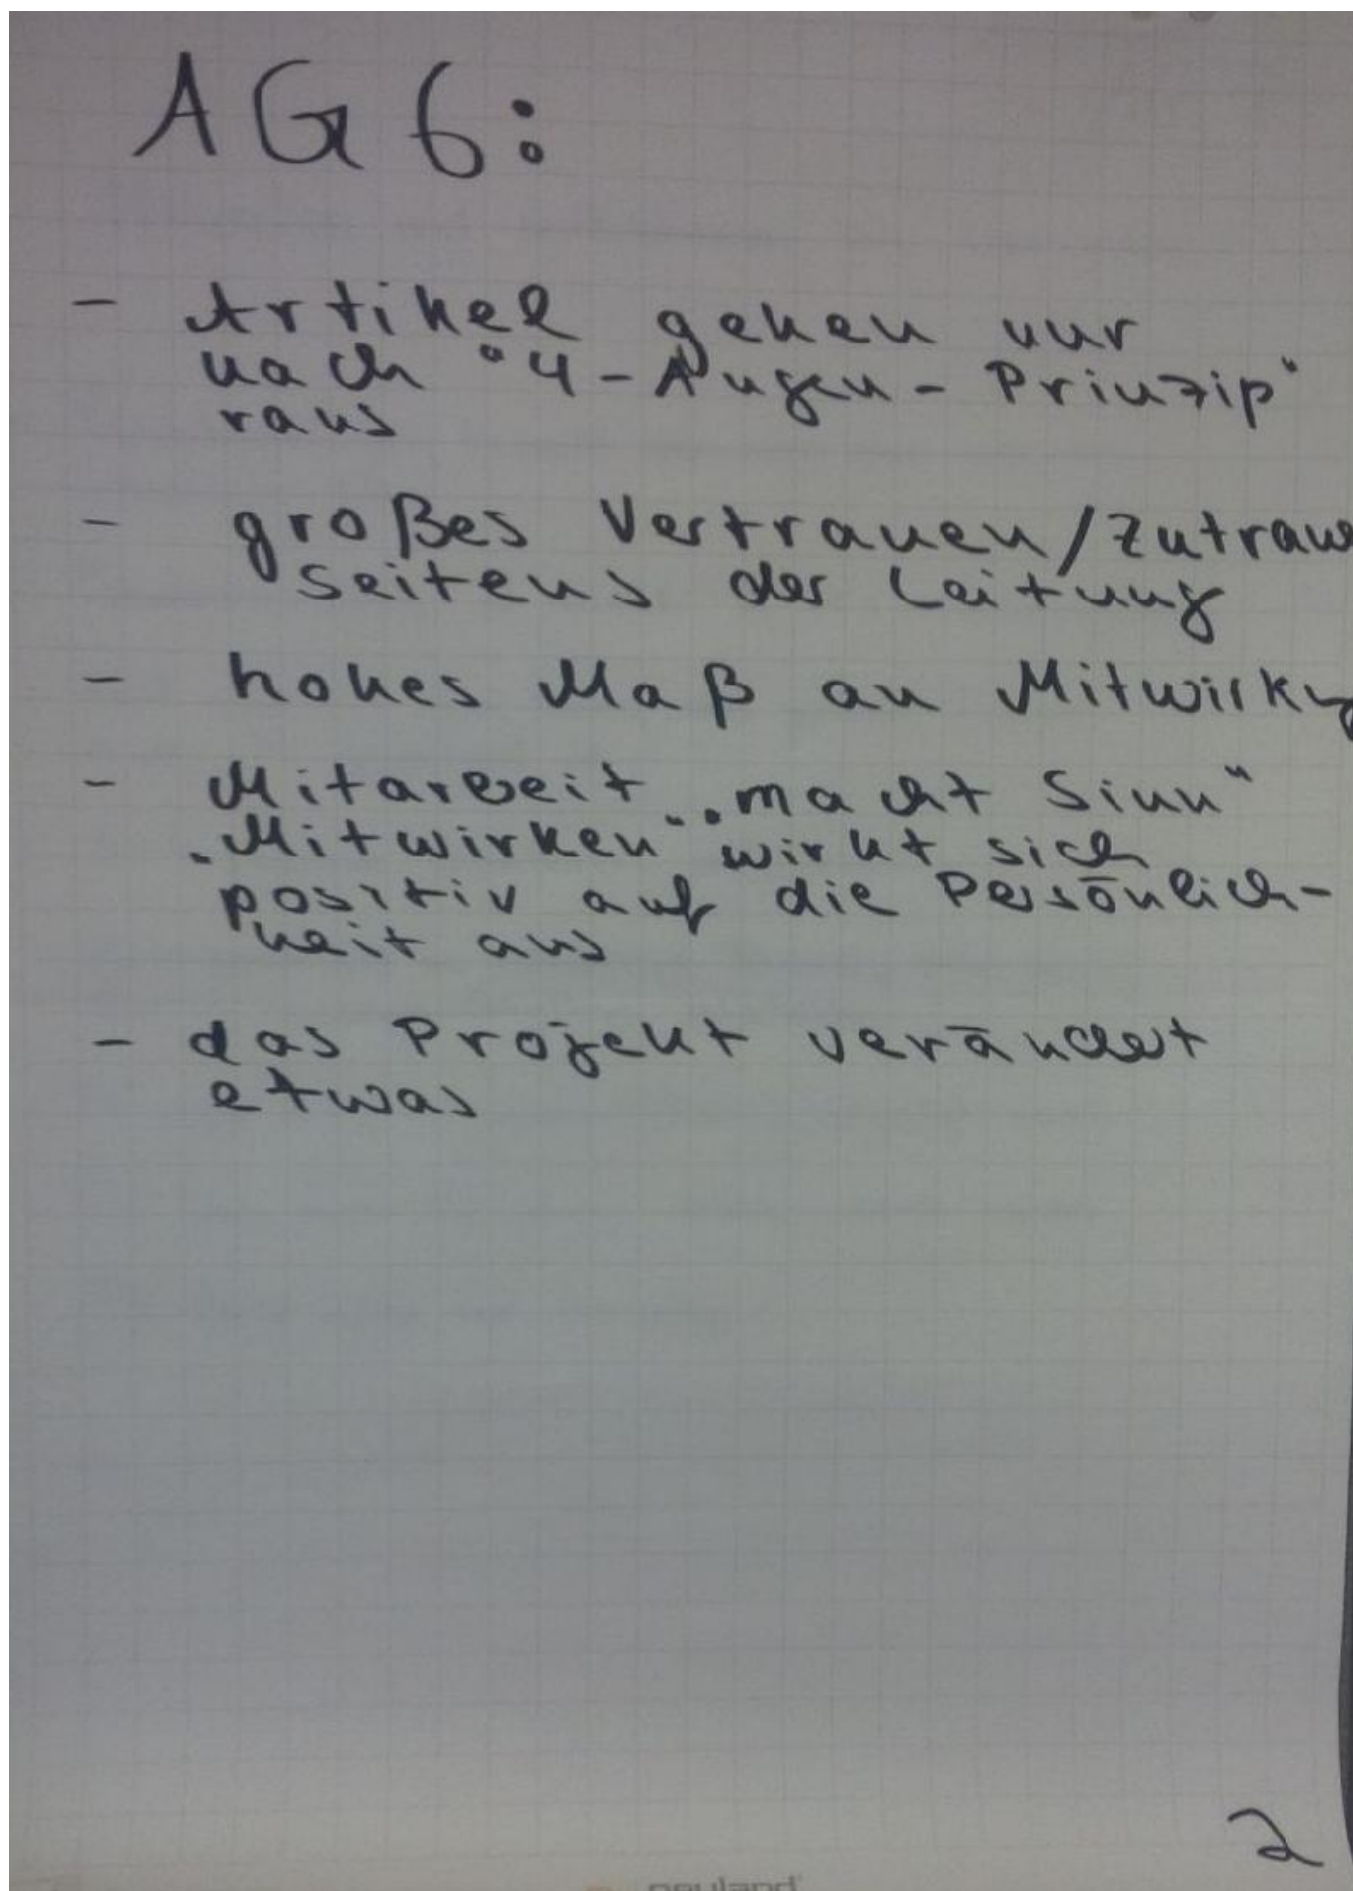 AG 6:
- Artikel gehen nur
nach "4-Augen-Prinzip"
raus
- großes Vertrauen/Zutraue
seitens der Leitung
- hohes Maß an Mitwirkg
- Mitarbeit "macht Sinn"
"Mitwirken" wirkt sich
positiv auf die Persönlich-
keit aus
- das Projekt verändert
etwas
2
neuland